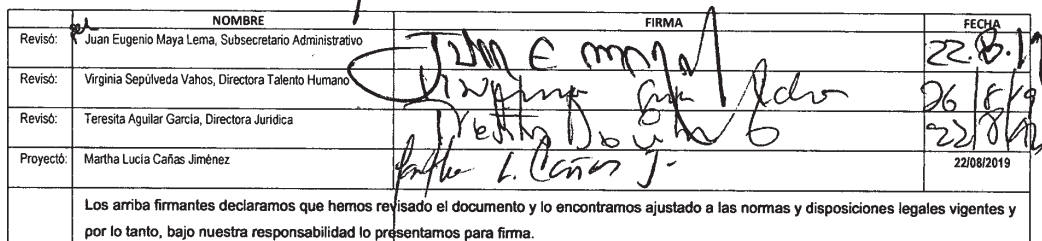 NOMBRE FIRMA FECHA
Revisó: Juan Eugenio Maya Lema, Subsecretario Administrativo Juan E Maya 22.8.19
Revisó: Virginia Sepúlveda Vahos, Directora Talento Humano 26/8/19
Revisó: Teresita Aguilar García, Directora Jurídica 22/8/19
Proyectó: Martha Lucía Cañas Jiménez Martha L. Cañas J. 22/08/2019
Los arriba firmantes declaramos que hemos revisado el documento y lo encontramos ajustado a las normas y disposiciones legales vigentes y
por lo tanto, bajo nuestra responsabilidad lo presentamos para firma.